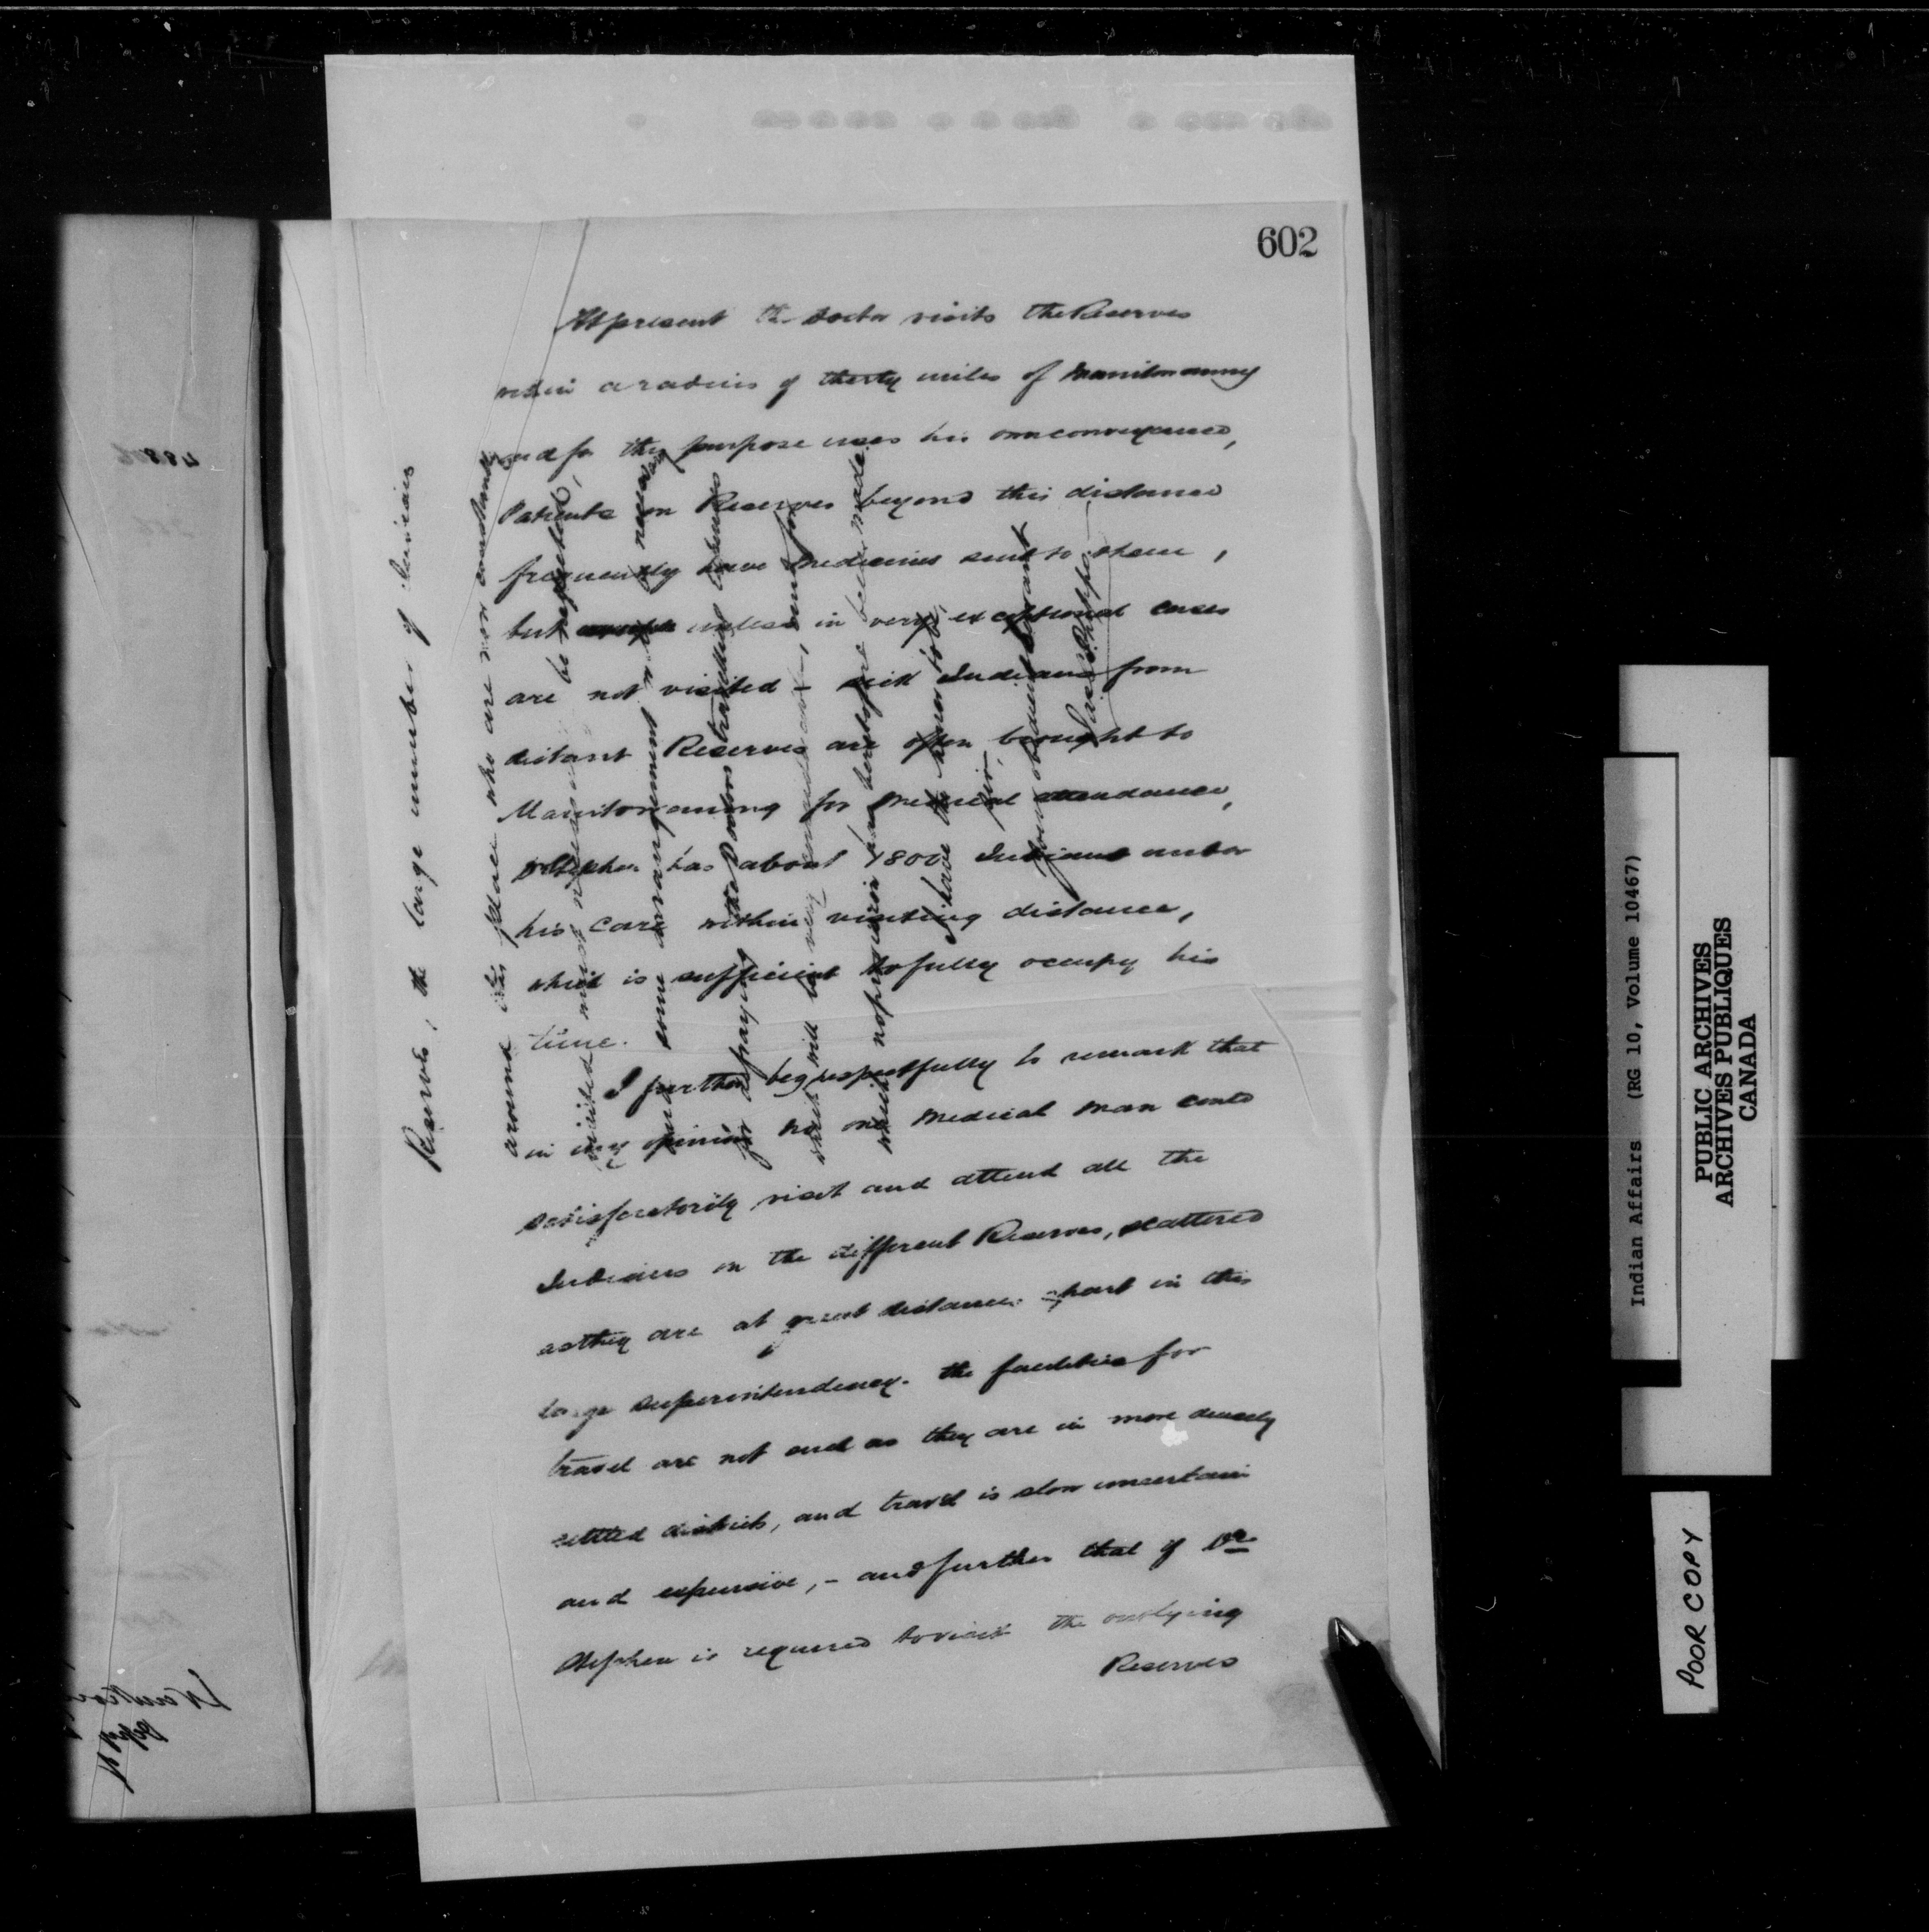 602
At present the Doctor visits the Reserves
within a radius of thirty miles of Manitowaning
and for this purpose uses his own conveyance,
Patients on Reserves beyond this distance
frequently have medicines sent to them,
but unless in very exceptional cases
are not visited – sick Indians from
distant Reserves are often brought to
Manitowaning for medical attendance,
Dr Stephen has about 1800 Indians under
his care within visiting distance,
which is sufficient to fully occupy his
time.
I further beg respectfully to remark that
in my opinion no one medical man could
satisfactorily visit and attend all the
Indians on the different Reserves, scattered
as they are at great distances apart in this
large superintendency. the facilities for
travel are not such as they are in more densely
settled districts, and travel is slow uncertain
and expensive, – and further that if Dr
Stephen is required to visit the outlying
Reserves
Reserves, the large number of Indians
around this place who are now constantly
visited must necessarily be neglected,
and some arrangement will be necessary
for defraying the Doctors travelling expenses
which will be very considerable, and for
which no provision has heretofore been made.
I have the honor to be,
Sir,
Your obedient Servant
Jas C Phipps
Indian Affairs (RG 10, Volume 10467)
PUBLIC ARCHIVES
ARCHIVES PUBLIQUES
CANADA
POOR COPY